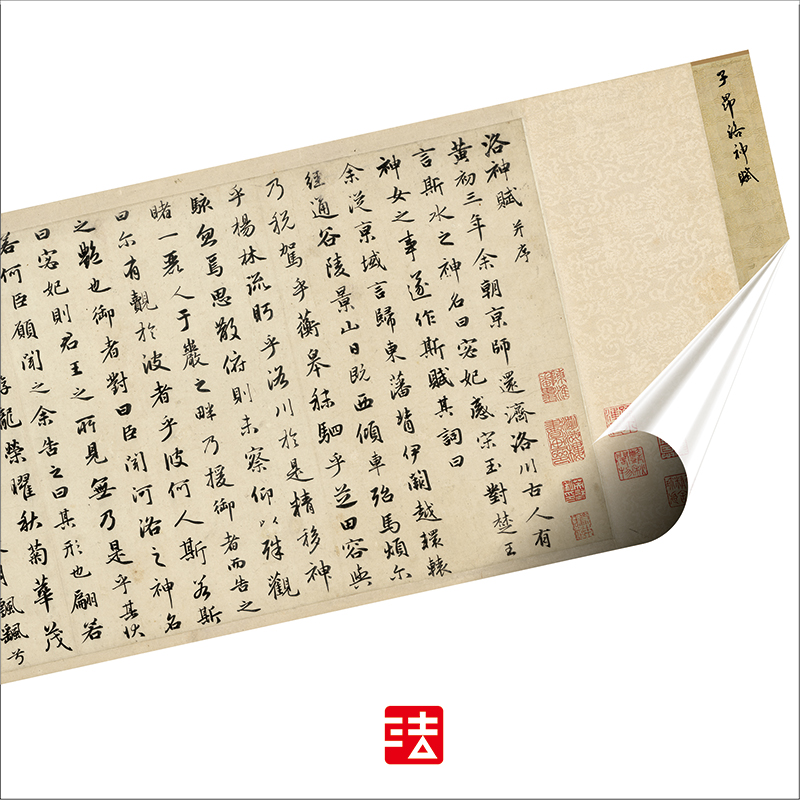 子昂洛神賦
洛神賦 并序
黄初三年余朝京師還濟洛川古人有
言斯水之神名曰宓妃感宋玉對楚王
神女之事遂作斯賦其詞曰
余從京域言歸東藩背伊闕越轘轅
經通谷陵景山日既西傾車殆馬煩尔
乃税駕乎蘅皋秣駟乎芝田容與
乎楊林流眄乎洛川於是精移神
駭忽焉思散俯則未察仰以殊觀
睹一麗人于巖之畔乃援御者而告之
曰尔有覿於彼者乎彼何人斯若斯
之艷也御者對曰臣聞河洛之神名
曰宓妃則君王之所見無乃是乎其状
若何臣願聞之余告之曰其形也翩若
龍榮曜秋菊華茂
飄颻兮
法